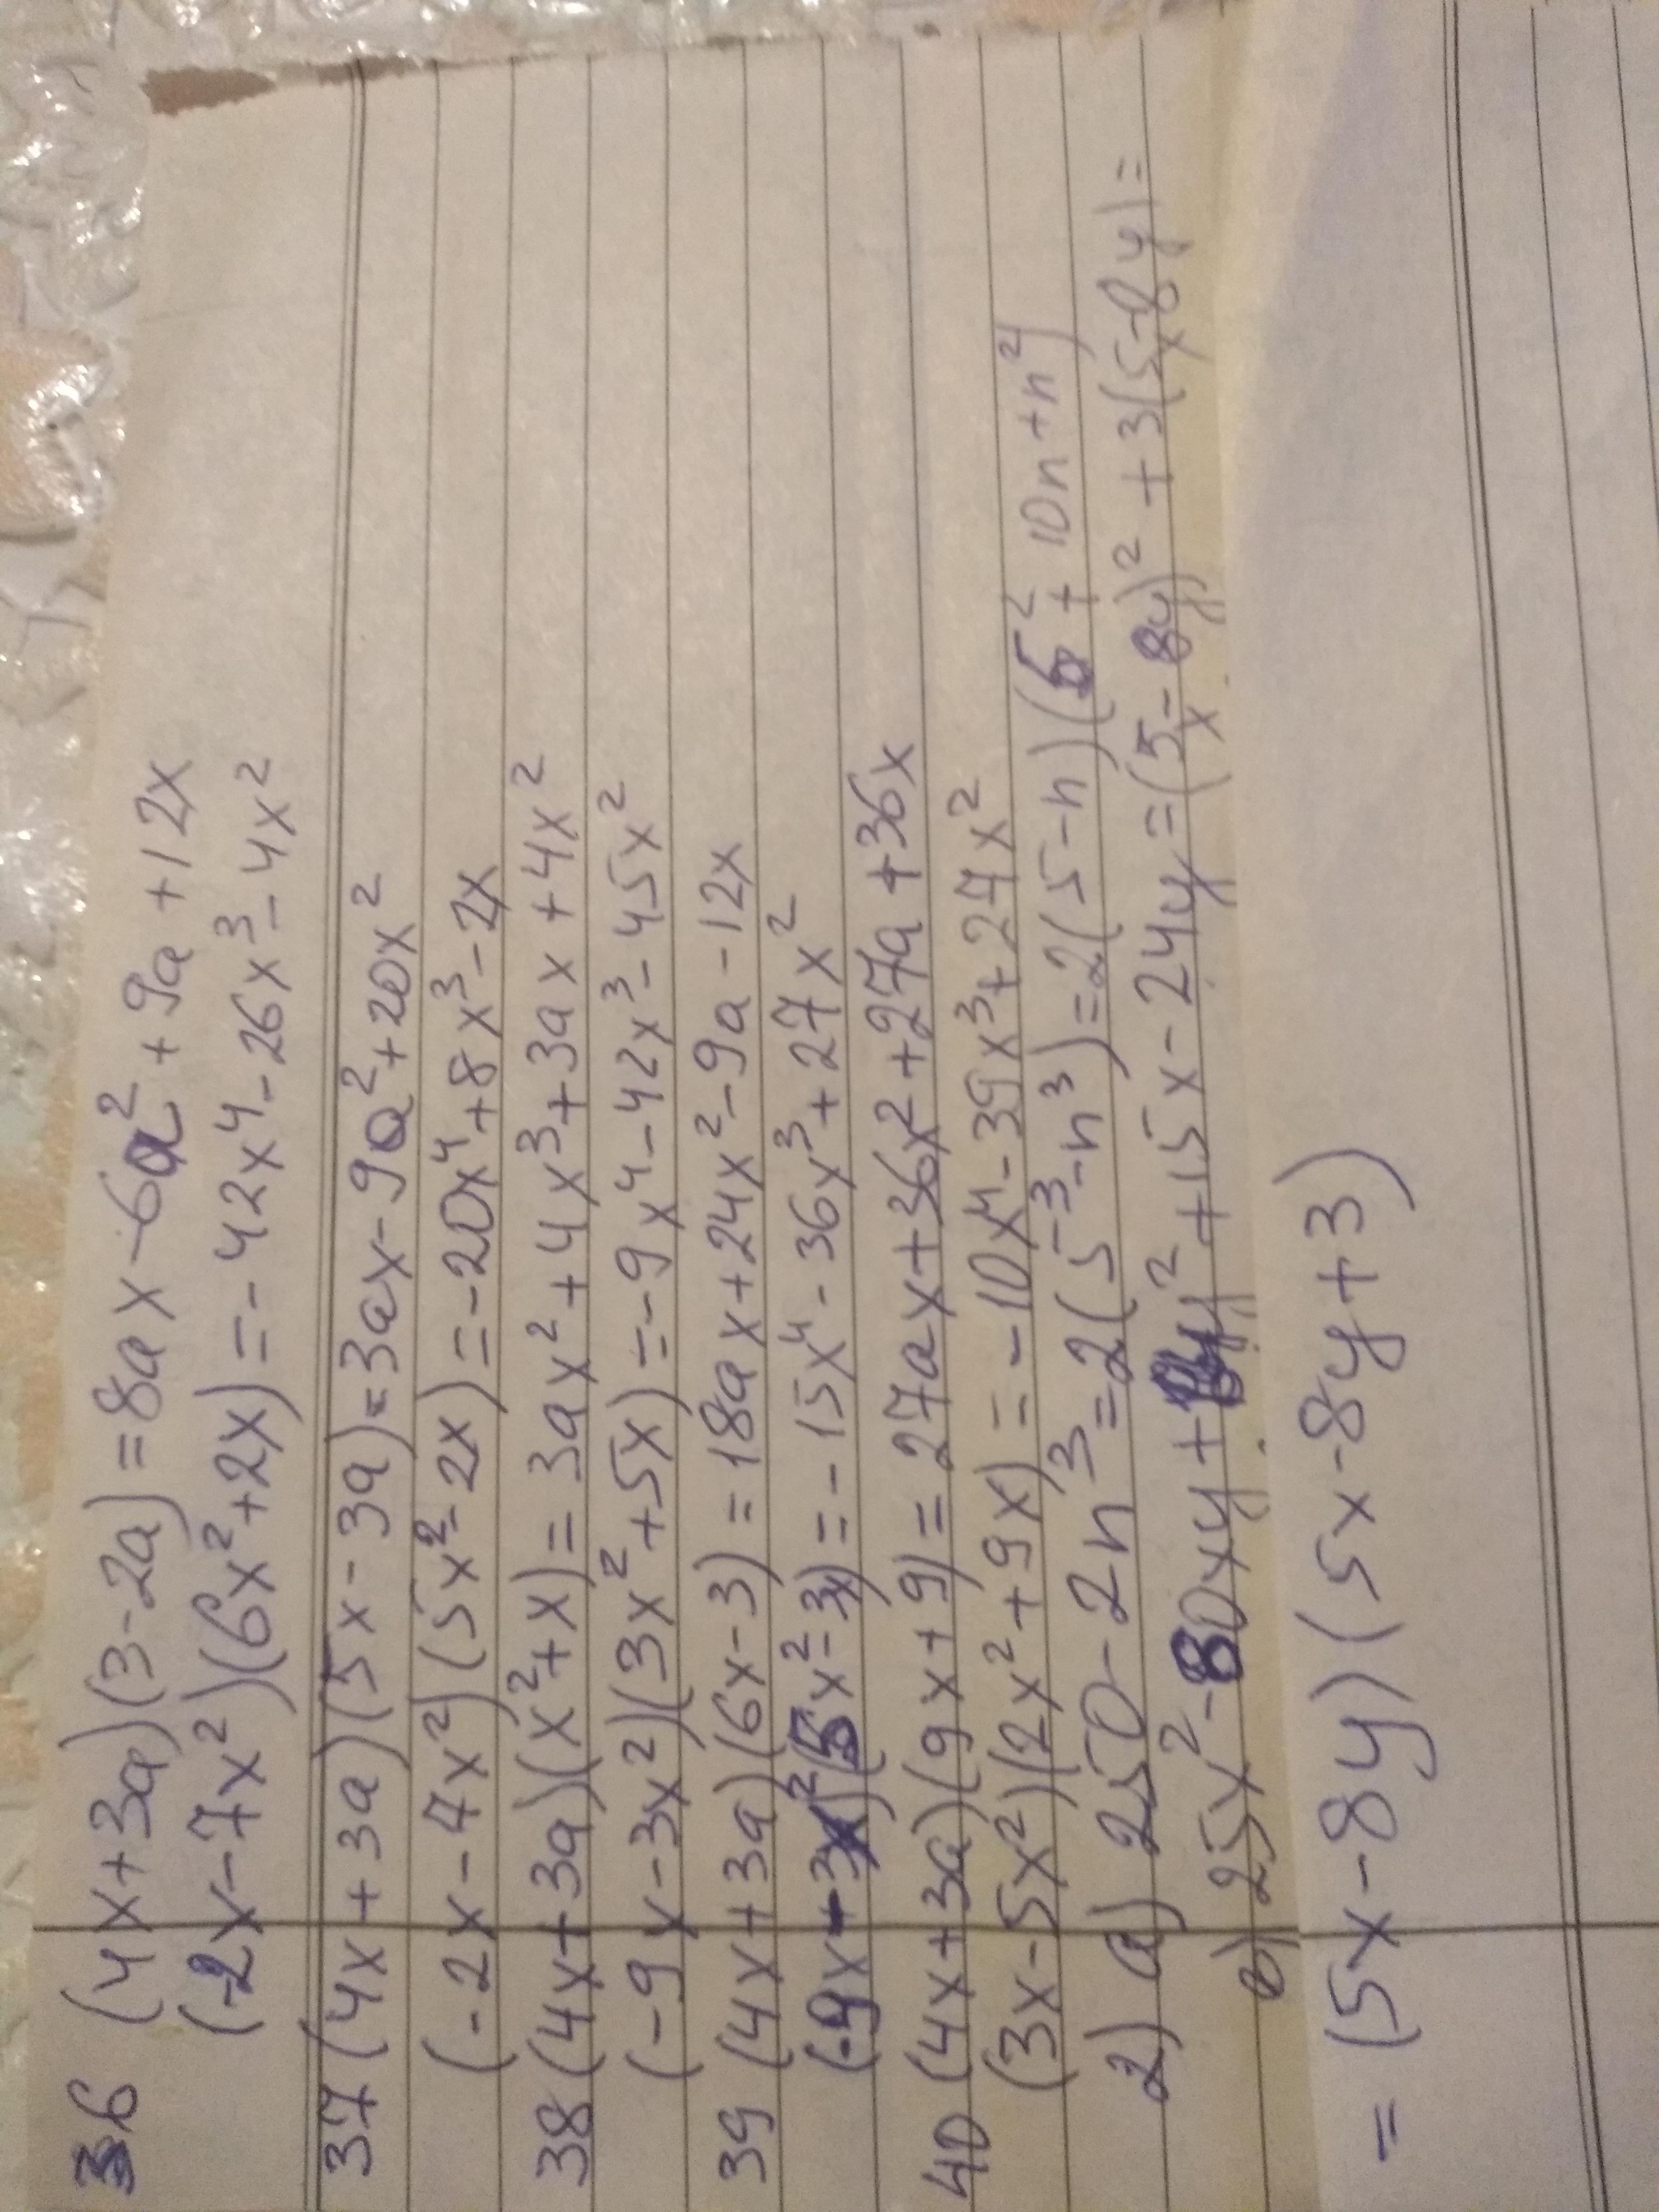 36 (4x+3a)(3-2a)=8ax-6a²+9a+12x
(-2x-7x²)(6x²+2x)=-42x⁴-26x³-4x²
37 (4x+3a)(5x-3a)=3ax-9a²+20x²
(-2x-4x²)(5x²-2x)=-20x⁴+8x³-2x
38 (4x+3a)(x²+x)=3ax²+4x³+3ax+4x²
(-9x-3x²)(3x²+5x)=-9x⁴-42x³-45x²
39 (4x+3a)(6x-3)=18ax+24x²-9a-12x
(-9x+3x²)(5x²-3x)=-15x⁴-36x³+27x²
40 (4x+3a)(9x+9)=27ax+36x²+27a+36x
(3x-5x²)(2x²+9x)=-10x⁴-39x³+27x²
2) a) 250-2n³=2(5³-n³)=2(5-n)(5²+10n+n²)
в) 25x²-80xy+ y²+15x-24y=(5x-8y)²+3(5x-8y)=
=(5x-8y)(5x-8y+3)